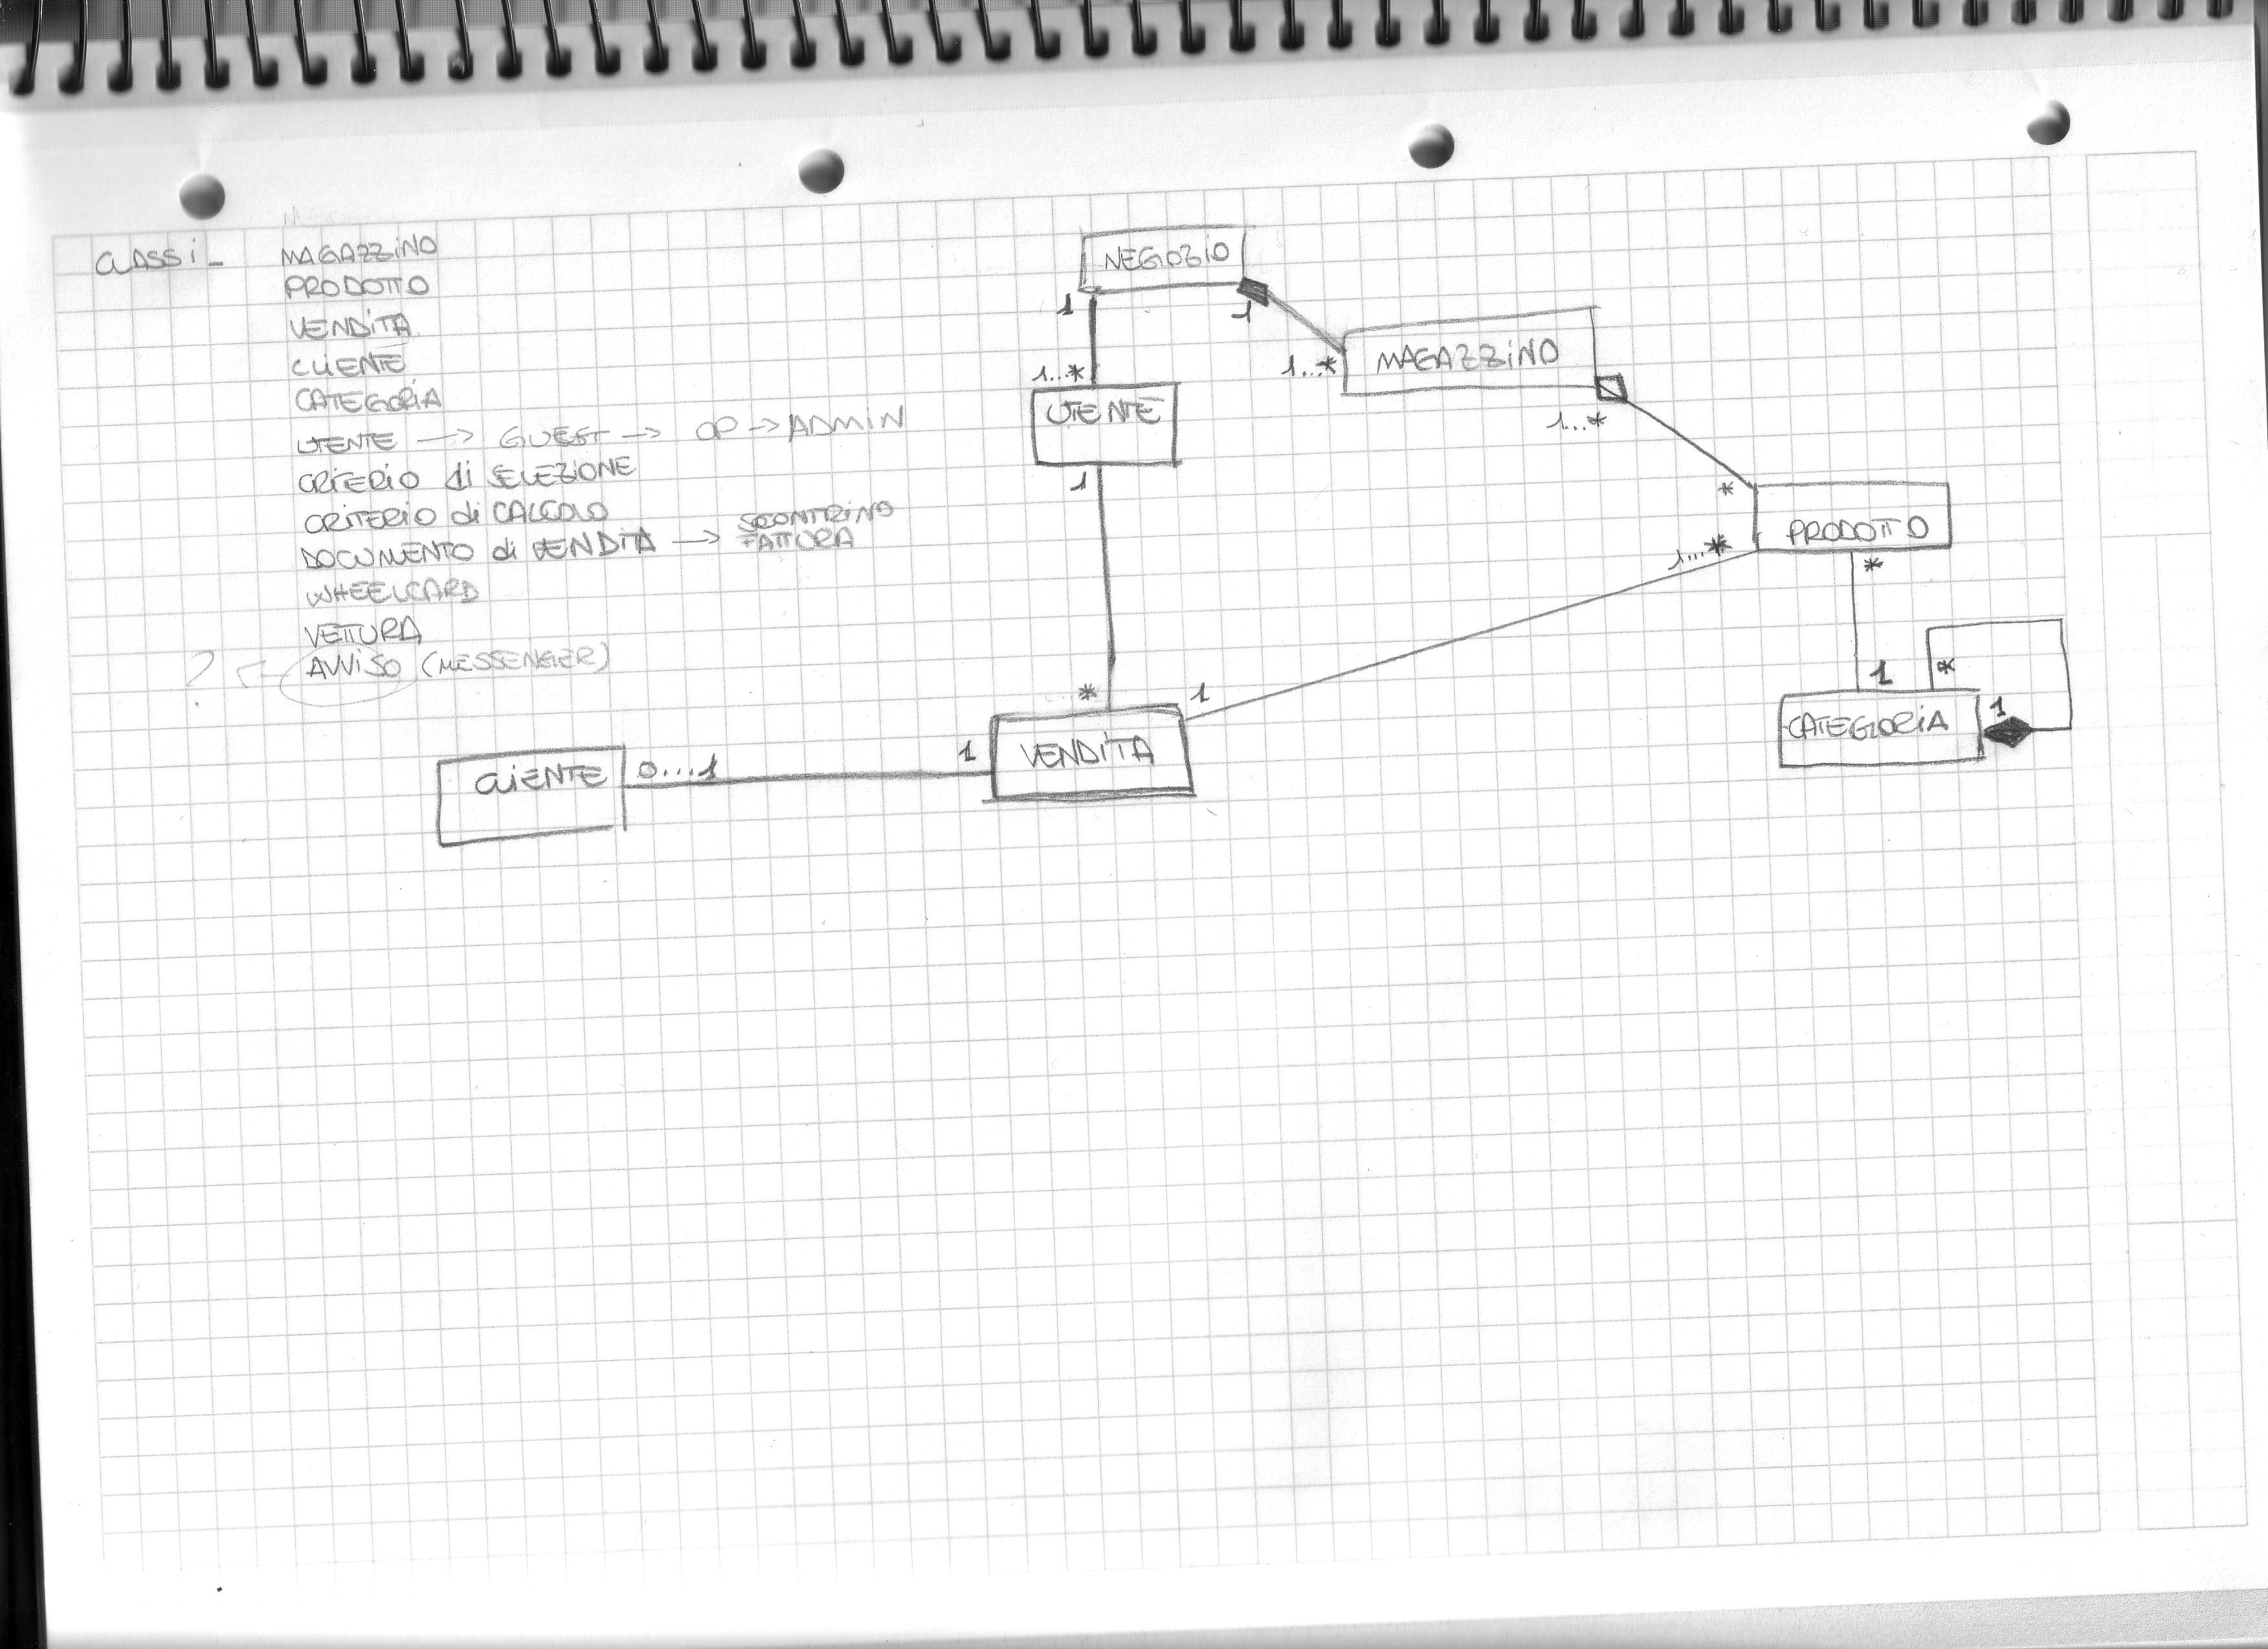 CLASSI - MAGAZZINO
PRODOTTO
VENDITA
CLIENTE
CATEGORIA
UTENTE → GUEST → OP → ADMIN
CRITERIO di SELEZIONE
CRITERIO di CALCOLO
DOCUMENTO di VENDITA → SCONTRINO
FATTURA
WHEELCARD
VETTURA
? ← AVVISO (MESSENGER)
NEGOZIO
1 1
1...* MAGAZZINO
1...*
UTENTE
1...*
1
*
PRODOTTO
1...*
*
* 1
1 *
CATEGORIA 1
VENDITA
CLIENTE 0...1 1